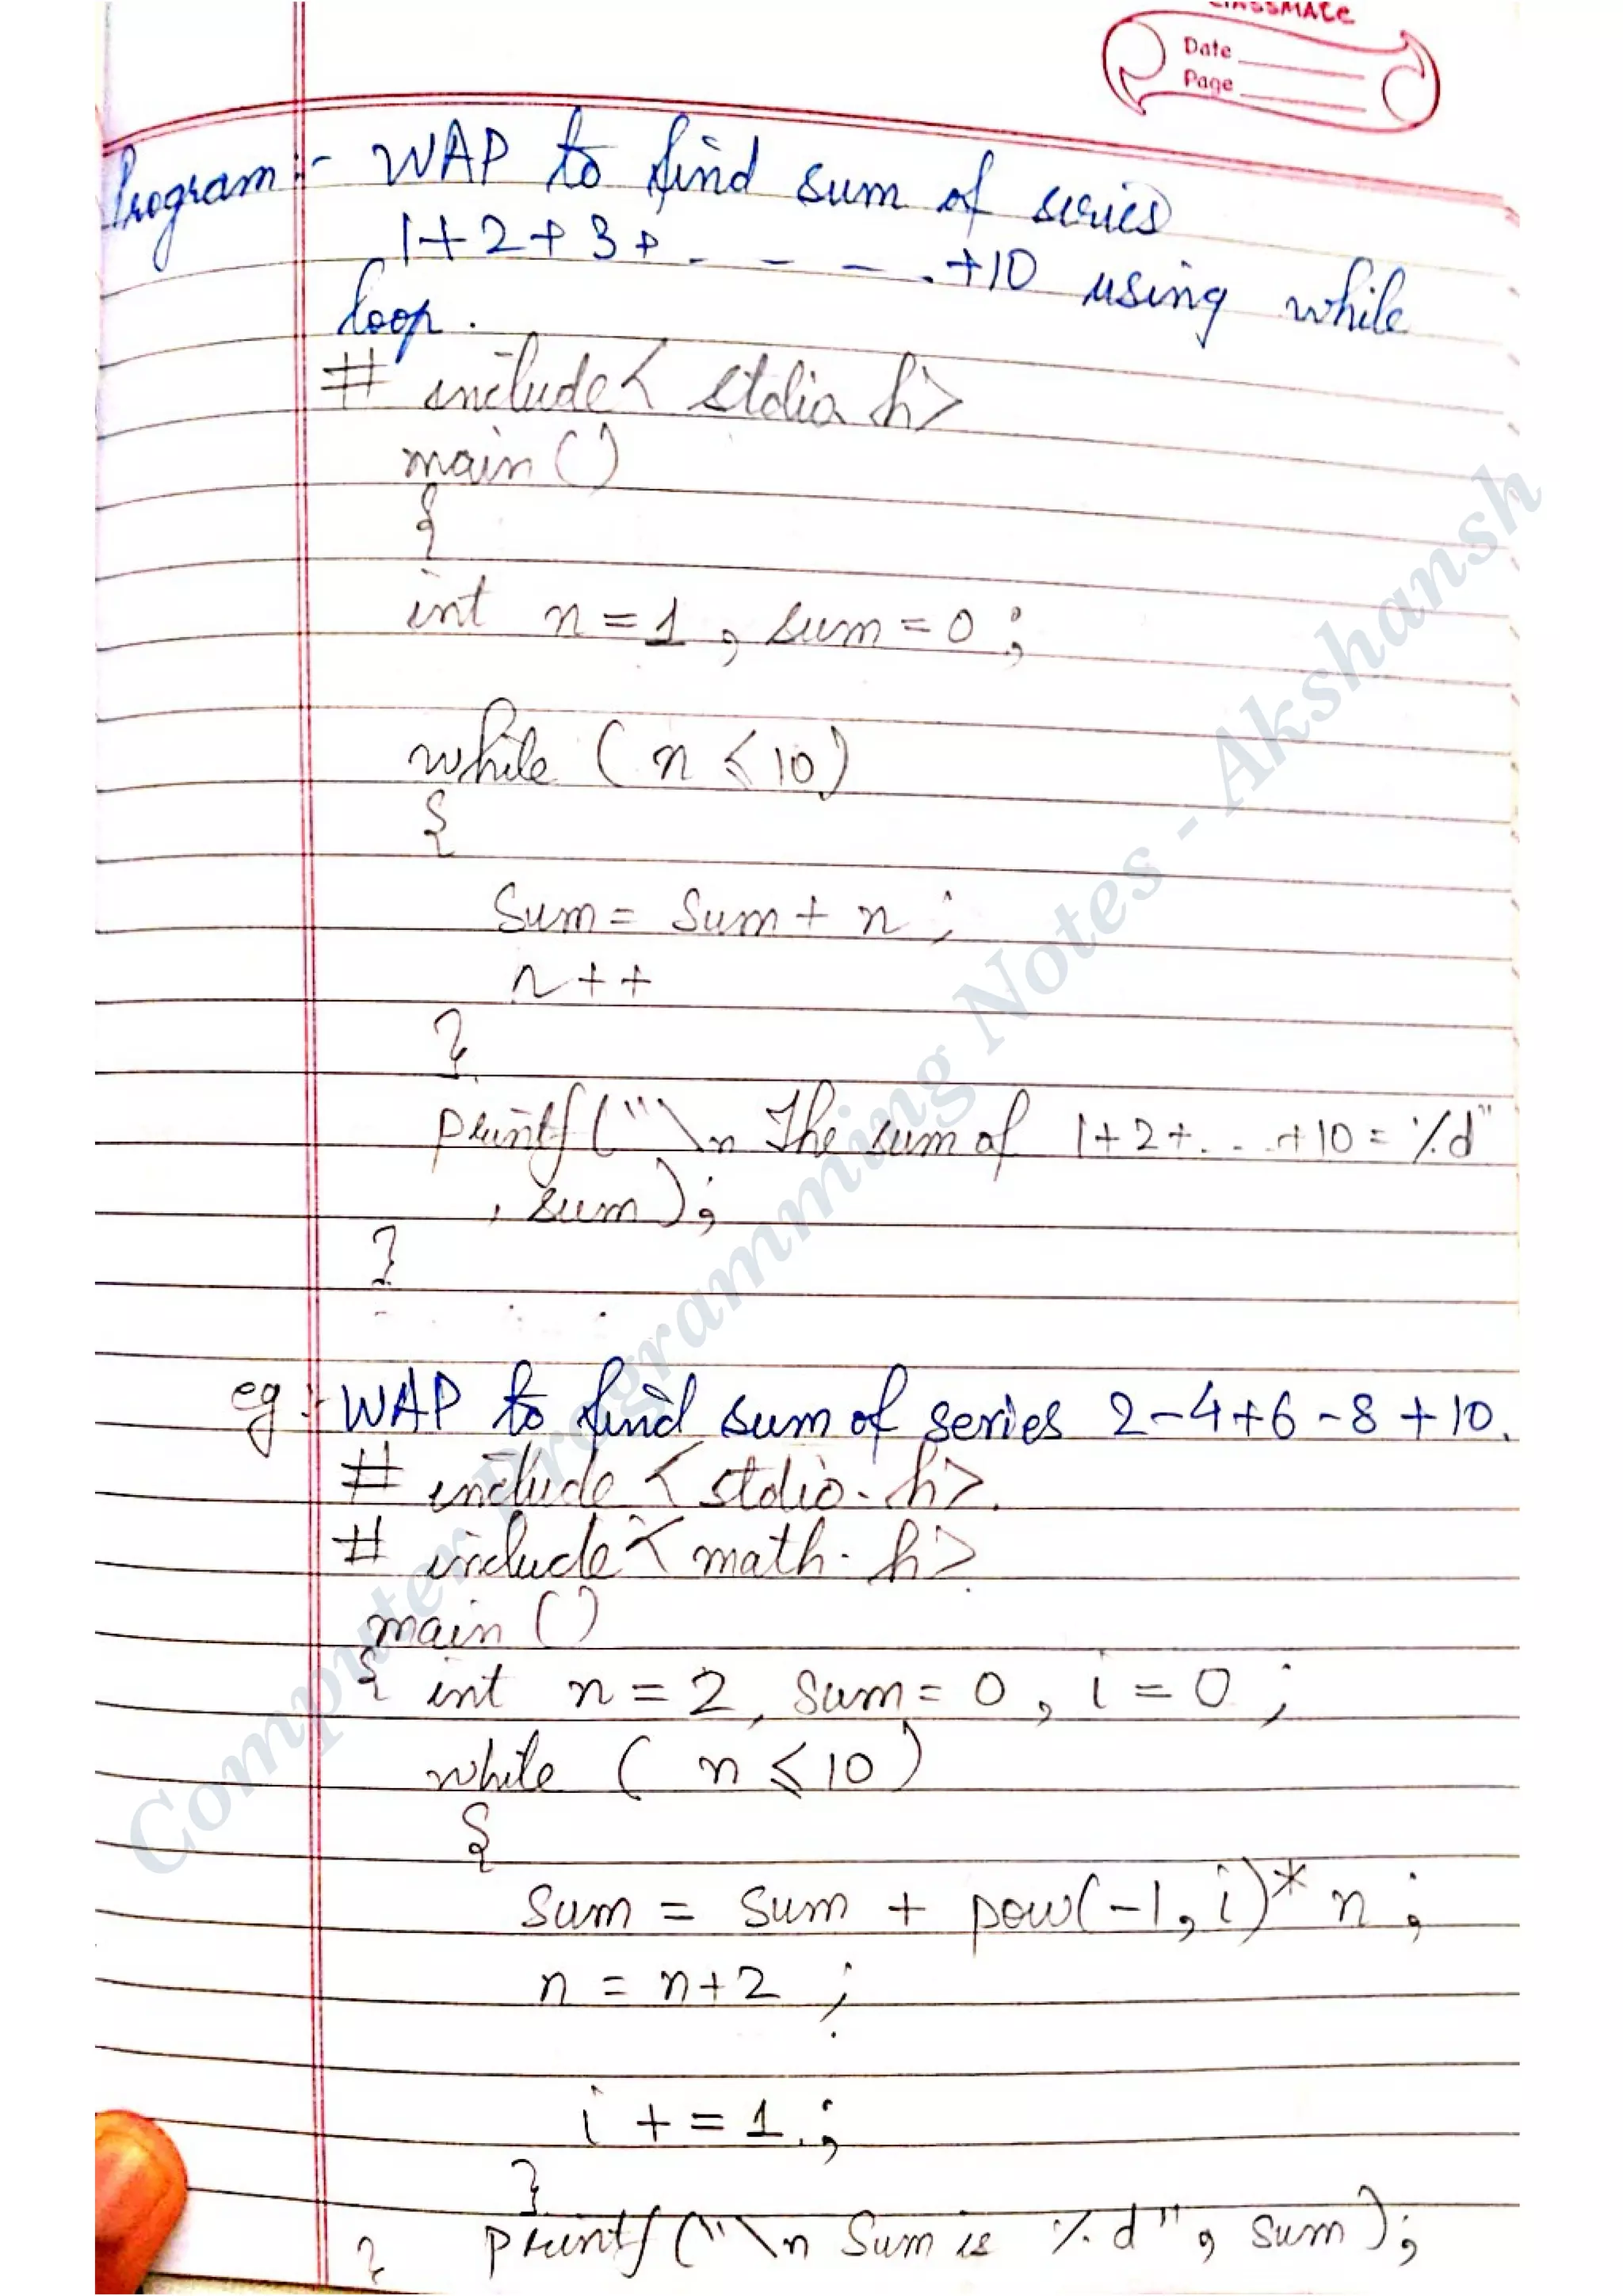 classmate
Date
Page
Program :- WAP to find sum of series
1+2+3+. - - - . +10 using while
loop.
# include < stdio h>
main ()
{
int n = 1 , sum = 0 ;
while ( n ≤ 10 )
{
Sum = Sum + n ;
n ++
}
printf ("\n The sum of 1+2+. . . +10 = %d"
, sum ) ;
}
eg :- WAP to find sum of series 2-4+6-8+10.
# include < stdio.h>.
# include < math.h>
main ()
{ int n = 2, Sum = 0 , i = 0 ;
while ( n ≤ 10 )
{
Sum = Sum + pow(-1, i)* n ;
n = n+2 ;
i + = 1 ;
}
printf ("\n Sum is %d" , Sum ) ;
}
Computer Programming Notes - Akshansh